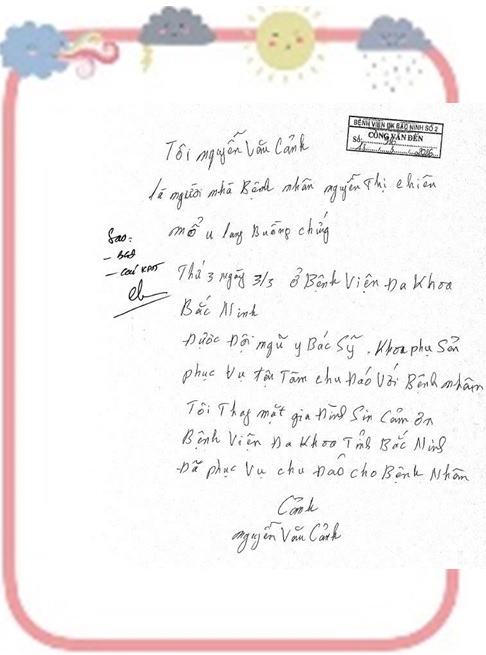 BỆNH VIỆN ĐK BẮC NINH SỐ 2
CÔNG VĂN ĐẾN
Số:
Tôi nguyễn Văn Cảnh
là người nhà Bệnh nhân nguyễn Thị Chiên
mổ u lang Buồng chứng
Sao:
- BGĐ
Thứ 3 ngày 3/3 ở Bệnh Viện Đa Khoa
Bắc Ninh
Được Đội ngũ y Bác Sỹ, Khoa phụ Sản
phục Vụ tận Tâm chu Đáo Với Bệnh nhâm
Tôi Thay mặt gia Đình Sin Cảm ơn
Bệnh Viện Đa Khoa Tỉnh Bắc Ninh
Đã phục Vụ chu Đaó cho Bệnh Nhâm
Cảnh
nguyễn Văn Cảnh